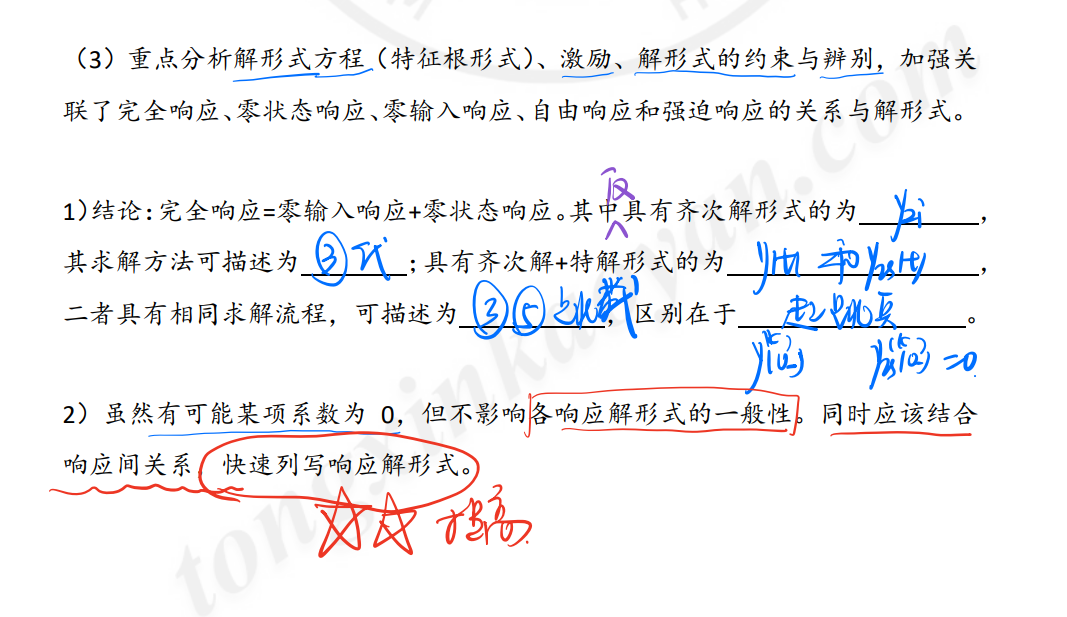 （3）重点分析解形式方程（特征根形式）、激励、解形式的约束与辨别，加强关
联了完全响应、零状态响应、零输入响应、自由响应和强迫响应的关系与解形式。
仅
1)结论：完全响应=零输入响应+零状态响应。其中具有齐次解形式的为 yzi ，
其求解方法可描述为 ③代 ；具有齐次解+特解形式的为 y(t) 和 yzs(t) ，
二者具有相同求解流程，可描述为 ③⑤ ，区别在于 起 。
yzs(0-)=0
2）虽然有可能某项系数为 0，但不影响各响应解形式的一般性。同时应该结合
响应间关系，快速列写响应解形式。
tongxinkaoyan.com